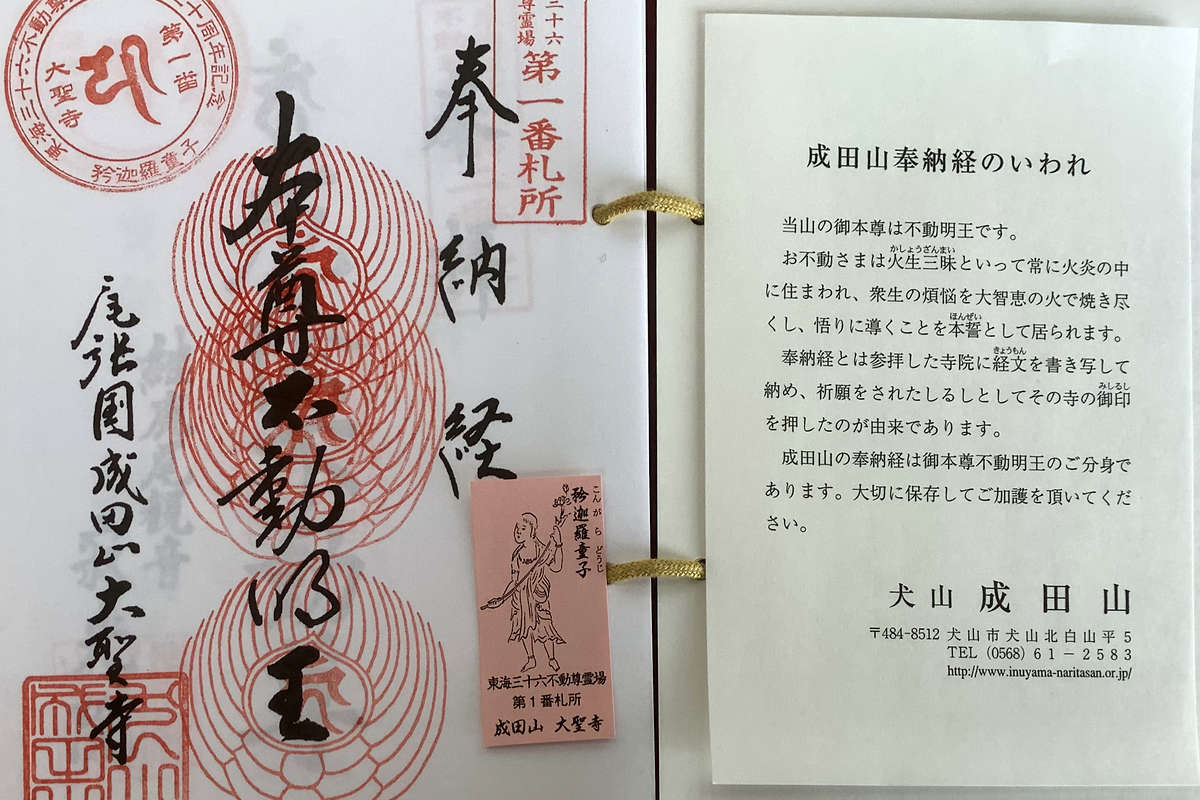 三十六
尊霊場
第一番札所
奉納経
本尊不動明王
尾張国成田山大聖寺
東海三十六不動尊
十周年記念
第一番
大聖寺
矜迦羅童子
こんがらどうじ
矜迦羅童子
東海三十六不動尊霊場
第1番札所
成田山 大聖寺
成田山奉納経のいわれ
当山の御本尊は不動明王です。
かしょうざんまい
お不動さまは火生三昧といって常に火炎の中
に住まわれ、衆生の煩悩を大智恵の火で焼き尽
ほんぜい
くし、悟りに導くことを本誓として居られます。
きょうもん
奉納経とは参拝した寺院に経文を書き写して
みしるし
納め、祈願をされたしるしとしてその寺の御印
を押したのが由来であります。
成田山の奉納経は御本尊不動明王のご分身で
あります。大切に保存してご加護を頂いてくだ
さい。
犬山 成田山
〒484-8512 犬山市犬山北白山平5
TEL (0568) 61-2583
http://www.inuyama-naritasan.or.jp/